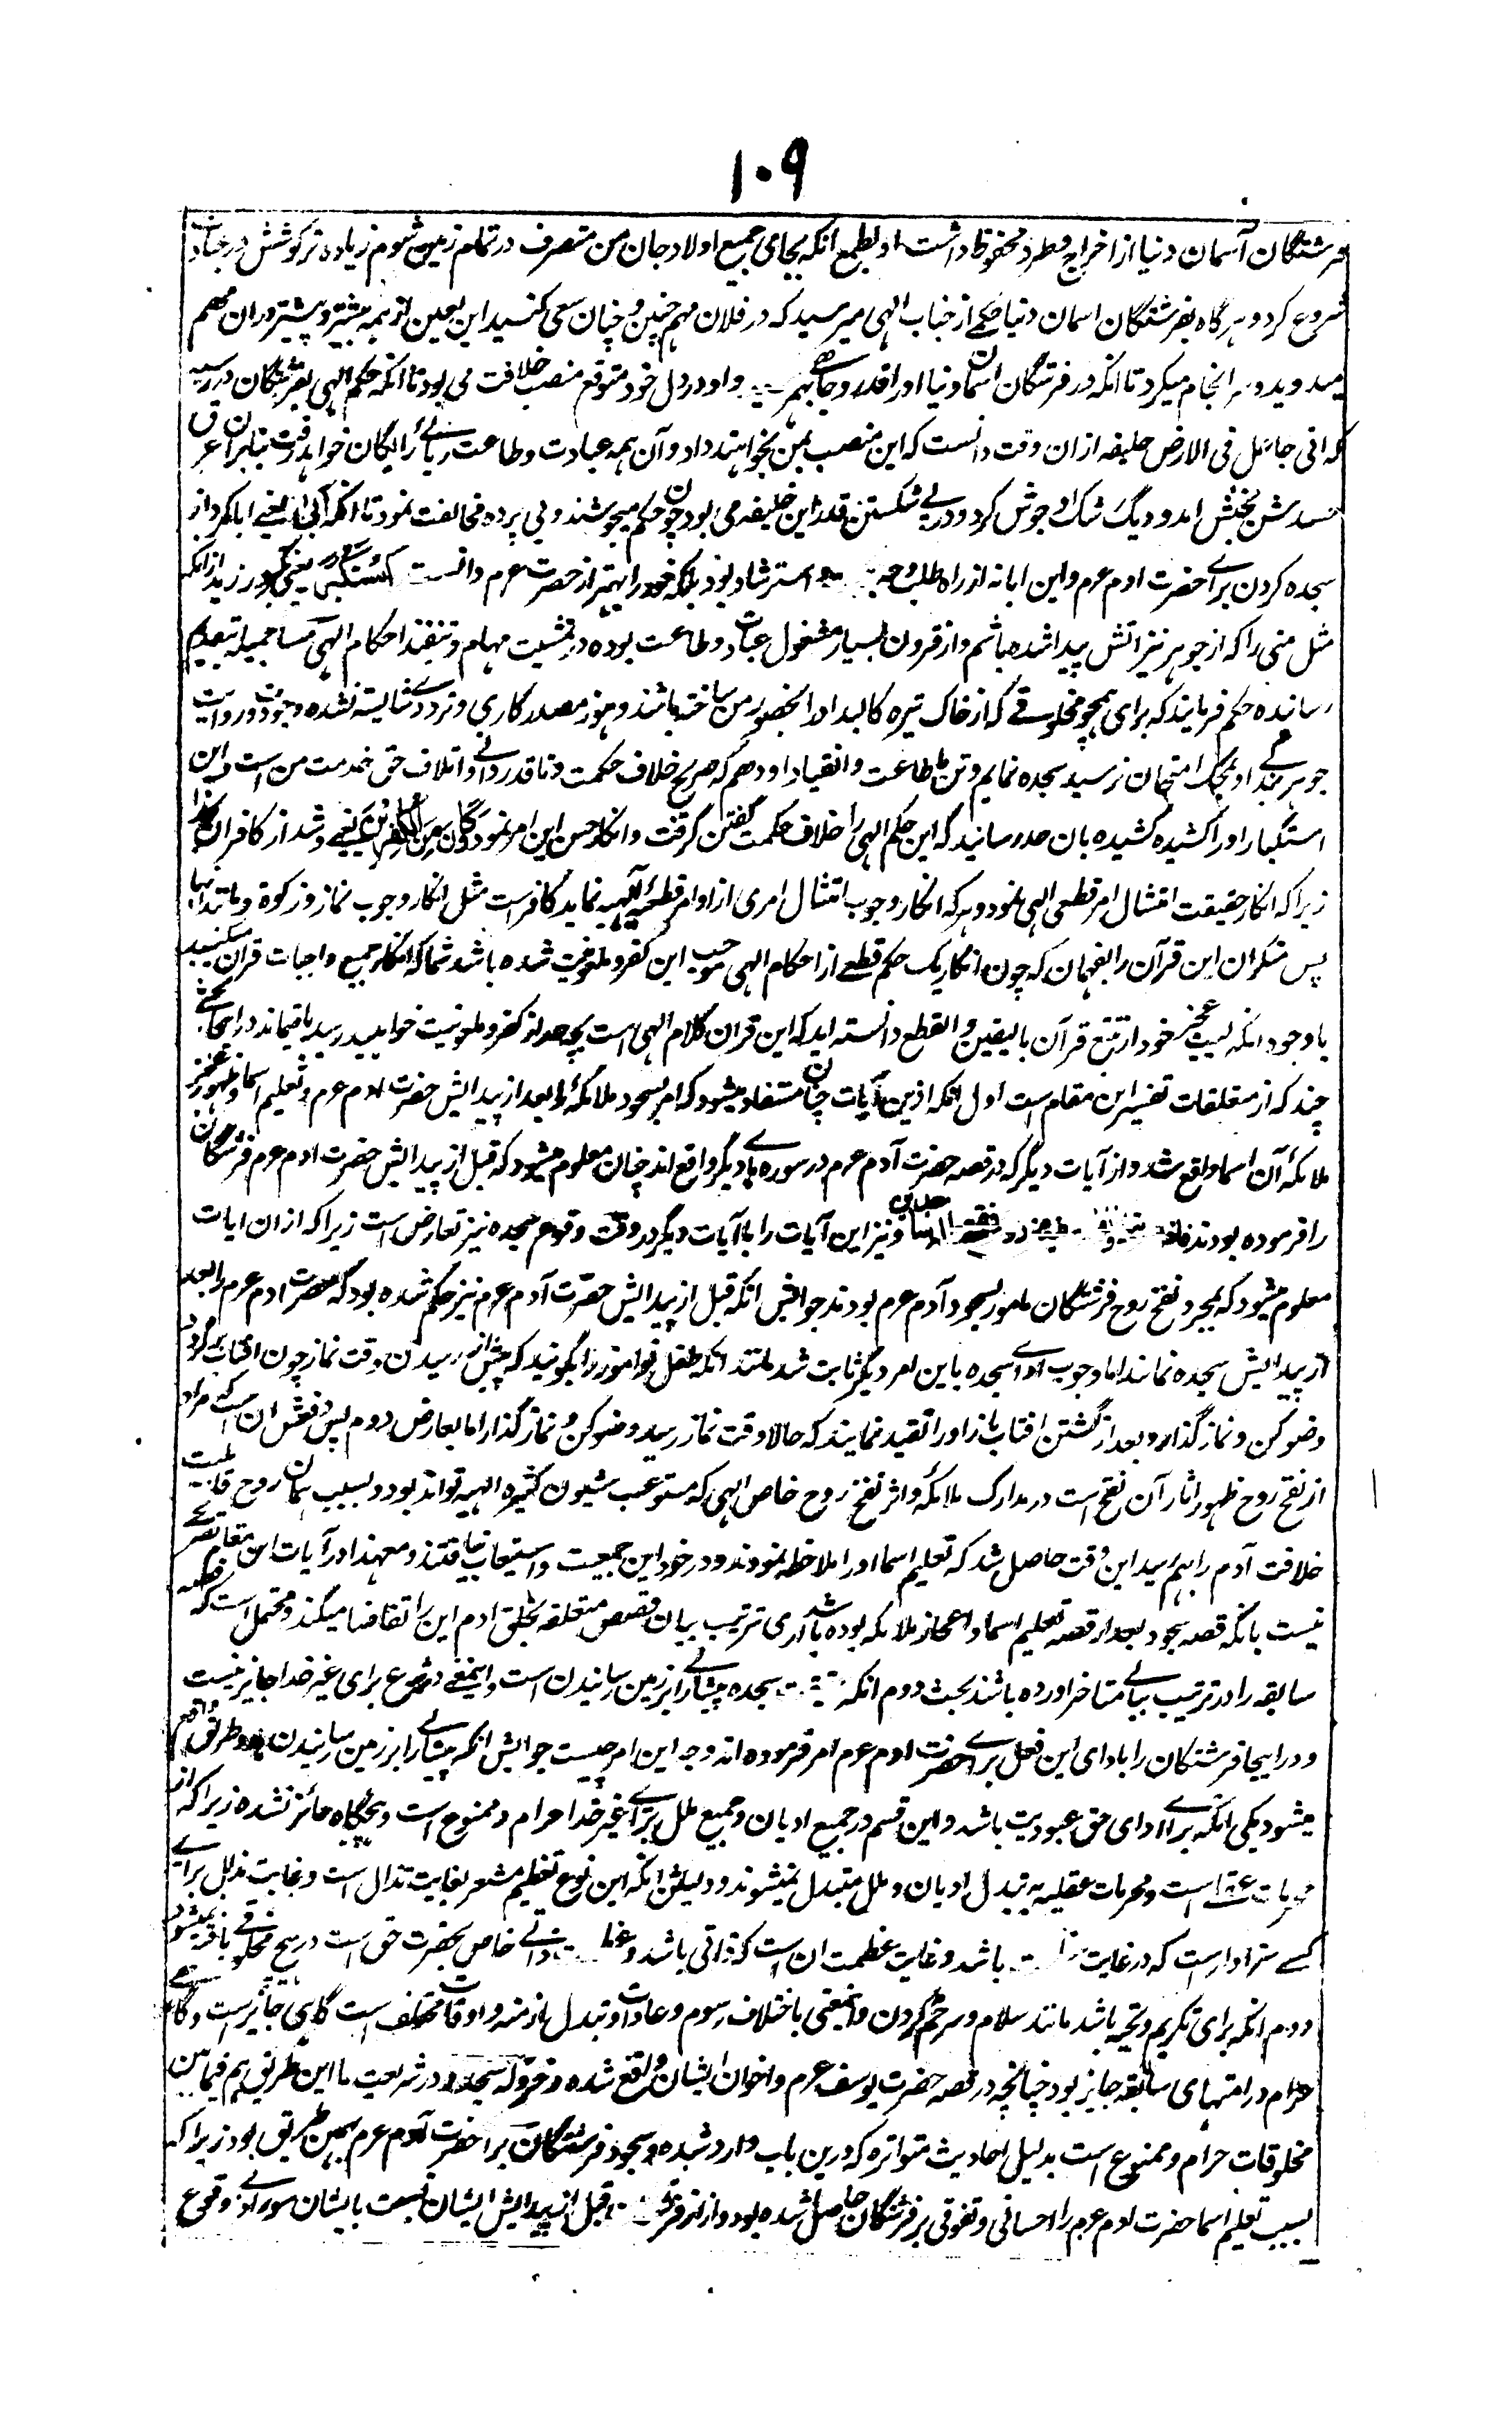 ۱۰۹
فرشتگان آسمان دنیا از اخراج و طرد محفوظ داشت او بطمع انکه بجای جمیع اولاد جان من متصرف در تمام زمین شوم زیاده تر کوشش در عبادت
شروع کرد و هر گاه بفرشتگان اسمان دنیا حکمے از جناب الهی میرسید که در فلان مهم چنین و چنان سعی کنید این لعین از همه بیشتر و پیشتر در ان مهم
میدوید و سر انجام میکرد تا انکه در فرشتگان اسمان دنیا او را قدر و جاهے بهم رسید و او در دل خود متوقع منصب خلافت می بود تا انکه حکم الهی بفرشتگان در رسید
که انی جاعل فی الارض خلیفه از ان وقت دانست که این منصب بمن نخواهند داد و آن همه عبادت و طاعت ریائے رائیگان خواهد رفت بنابران عرق
حسدش بجنبش امد و دیگ شک او جوش کرد و در پے شکستن قدر این خلیفه می بود چون حکم سجود شنید بی پرده مخالفت نمود تا انکه ابی یعنے ابا کرد از
سجده کردن برای حضرت ادم عرم و این ابا نه از راه طلب وجه و استرشاد بود بلکه خود را بهتر از حضرت عرم دانست و استکبر یعنی تکبر ورزید از انکه
مثل منی را که از جوهر نیز اتش پیدا شده باشم و از قرون بسیار مشغول عبادت و طاعت بوده در تمشیت مهام و تنفیذ احکام الهی مساعی جمیله بتقدیم
رسانده حکم فرمایند که برای همچو مخلوقے که از خاک تیره کالبد او را بحضور من ساخته باشند و هنوز مصدر کاری و ترددے شایسته نشده و جودت و رداءت
جوهر او بمحک امتحان نرسید سجده نمایم و تن باطاعت و انقیاد او دهم که صریح خلاف حکمت و ناقدردانے و اتلاف حق خدمت من است و این
استکبار او را کشیده کشیده بان حد رسانید که این حکم الهی را خلاف حکمت گفتن گرفت و انکار حسن این امر نمود وَکَانَ مِنَ الْکَافِرِیْنَ یعنے و شد از کافران
زیرا که انکار حقیقت امتثال امر قطعی الهی نمود و هر که انکار وجوب امتثال امری از اوامر قطعیه الهیه نماید کافر است مثل انکار وجوب نماز و زکوة و مانند اینها
پس منکران این قرآن را بفهمان که چون انکار یک حکم قطعے از احکام الهی موجب این کفر و ملعونیت شده باشد شما که انکار جمیع واجبات قران میکنید
با وجود انکه بسبب عجز خود از تتبع قرآن بالیقین و القطع دانسته اید که این قران کلام الهی است بچه حد از کفر و ملعونیت خواهید رسید باقیماند در اینجا بحثے
چند که از متعلقات تفسیر این مقام است اول انکه ازین آیات چنان مستفاد میشود که امر بسجود ملائکه را بعد از پیدایش حضرت ادم عرم و تعلیم اسما و ظهور عجز
ملائکه از آن اسما واقع شد و از آیات دیگر که در قصه حضرت آدم عرم در سوره هاے دیگر واقع اند چنان معلوم میشود که قبل از پیدایش حضرت ادم عرم فرشتگان
را فرموده بودند فاذا و نیز این آیات را با آیات دیگر در وقت وقوع سجده نیز تعارض است زیرا که از ان ایات
معلوم میشود که بمجرد نفخ روح فرشتگان مامور بسجود آدم عرم بودند جوابش انکه قبل از پیدایش حضرت آدم عرم نیز حکم شده بود که حضرت ادم عرم را بعد
از پیدایش سجده نمایند اما وجوب اداے سجده باین امر دیگر ثابت شد مانند انکه طفل نو اموز را بگویند که پیش از رسیدن وقت نماز چون افتاب بگردد
وضو کن و نماز گذار و بعد از گشتن افتاب باز او را تقید نمایند که حالا وقت نماز رسید وضو کن و نماز گذار اما تعارض دوم پس دفعش ان است که مراد
از نفخ روح ظهور اثار آن نفخ است در مدارک ملائکه و اثر نفخ روح خاص الهی که مستوعب شیون کثیره الهیه تواند بود و بسبب همان روح قابلیت
خلافت آدم را بهم رسید این وقت حاصل شد که تعلیم اسما او را ملاحظه نمودند و در خود این جمعیت و استیعاب نیافتند و معهذا در آیات این مقام تصریح
نیست بانکه قصه سجود بعد از قصه تعلیم اسما و اعجاز ملائکه بوده باشد آری ترتیب بیان قصص متعلقه بخلق ادم این را تقاضا میکند و محتمل است که قصه
سابقه را در ترتیب بیانے متاخر اورده باشند بحث دوم انکه سجده پیشانے را بر زمین رسانیدن است و اینمعنے در شرع برای غیر خدا جایز نیست
و در اینجا فرشتگان را بادای این فعل براے حضرت ادم عرم امر فرموده اند وجه این امر چیست جوابش انکه پیشانے را بر زمین رسانیدن بدو طریق واقع
میشود یکی انکه براے ادای حق عبودیت باشد و این قسم در جمیع ادیان و جمیع ملل براے غیر خدا حرام و ممنوع است و هیچگاه جائز نشده زیرا که از
محرمات عقلے است و محرمات عقلیه به تبدل ادیان و ملل متبدل نمیشوند و دلیلش انکه این نوع تعظیم مشعر بغایت تذلل است و غایت تذلل براے
کسے سزاوار است که در غایت عظمت باشد و غایت عظمت ان است که ذاتی باشد و عظمت ذاتے خاص بحضرت حق است در هیچ مخلوقے یافته نمیشود
دوم انکه برای تکریم و تحیه باشد مانند سلام و سر خم کردن و اینمعنی باختلاف رسوم و عادات و تبدل ازمنه و اوقات مختلف است گاهی جائز است و گاهے
حرام در امتهای سابقه جایز بود چنانچه در قصه حضرت یوسف عرم و اخوان ایشان واقع شده و خروا له سجدا و در شریعت ما این طریق هم فیمابین
مخلوقات حرام و ممنوع است بدلیل احادیث متواتره که درین باب وارد شده و سجود فرشتگان براے حضرت آدم عرم بهمین طریق بود زیرا که
بسبب تعلیم اسما حضرت ادم عرم را احسانی و تفوقی بر فرشتگان حاصل شده بود و از قبل از پیدایش ایشان نسبت بایشان سوء ادبے وقوع